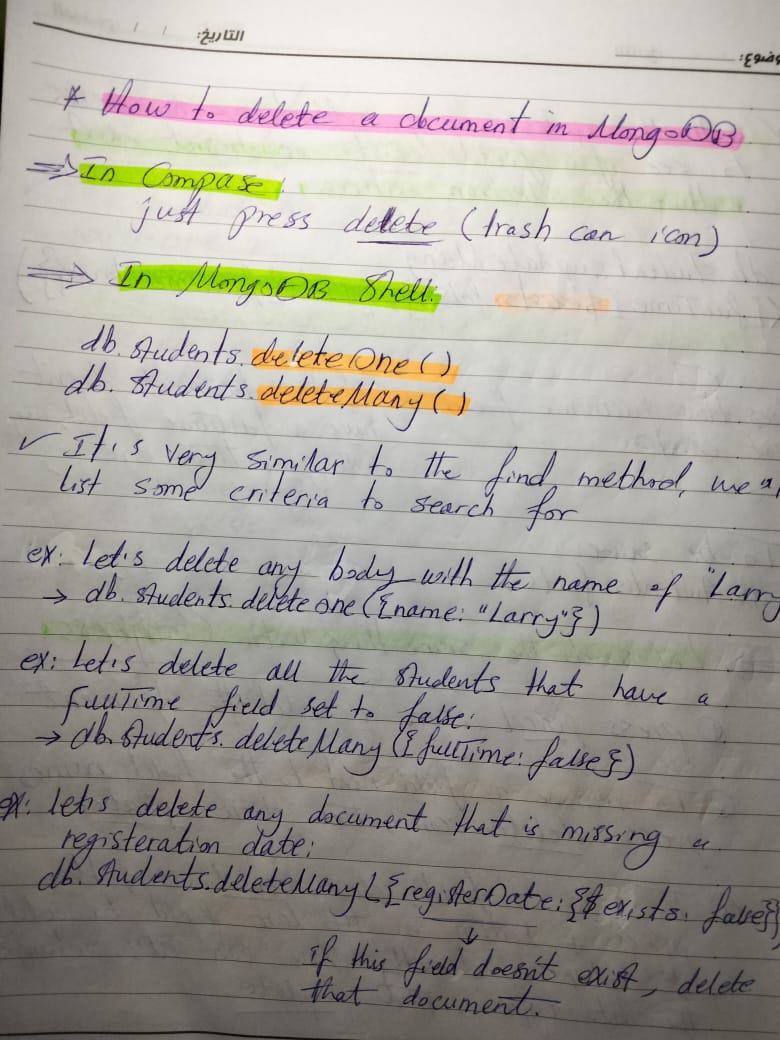 التاريخ: / /
وضوع:
* How to delete a document in MongoDB
⇒ In Compase:
just press delete (trash can icon)
⇒ In MongoDB Shell:
db.students.deleteOne()
db.students.deleteMany()
✓ It's very similar to the find method, we
list some criteria to search for
ex: Let's delete any body with the name of "Larry
→ db.students.delete one({name: "Larry"})
ex: Let's delete all the students that have a
FullTime field set to false:
→ db.students.deleteMany({fullTime: false})
ex: let's delete any document that is missing a
registeration date:
db.students.deleteMany({registerDate: {$exists: false}}
↓
if this field doesn't exist, delete
that document.